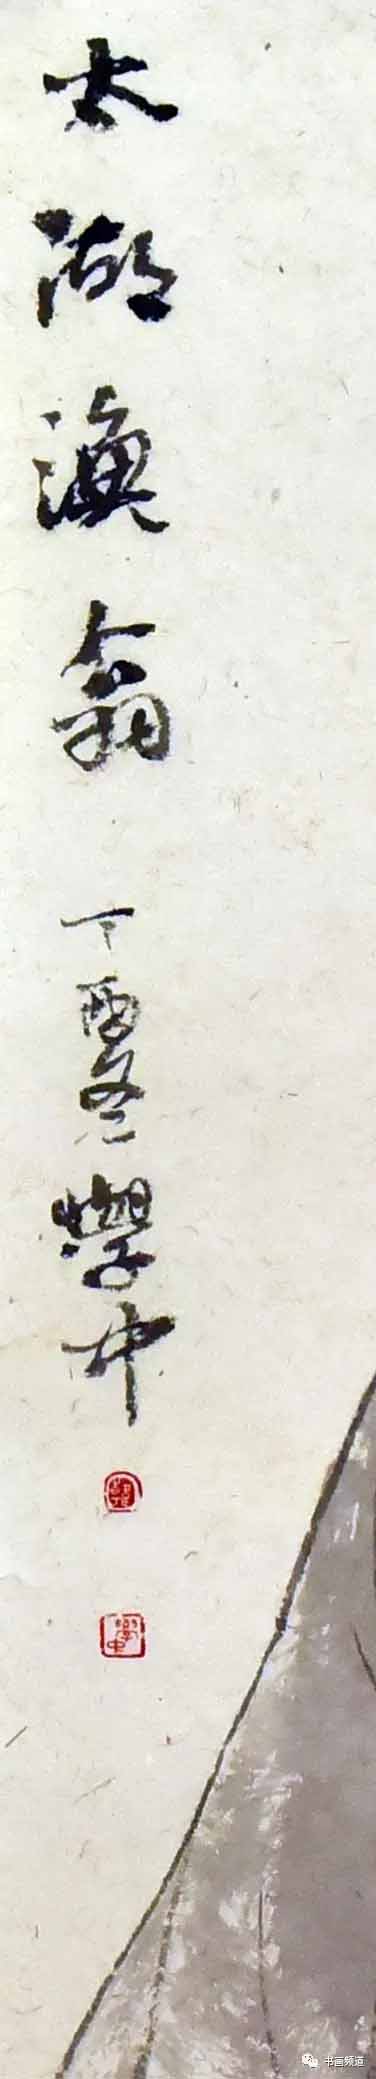 太湖漁翁 丁酉冬 學中
學中
书画频道